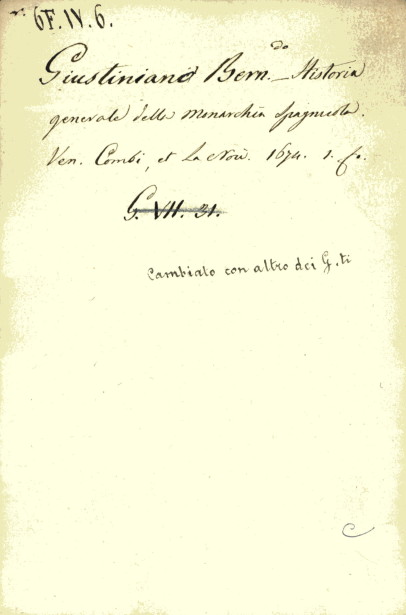 6F.IV.6.
Giustiniano Bern.do Historia
generale della Monarchia Spagnuola.
Ven. Combi, et La Noù. 1674. 1. fo.
G. VII. 21.
Cambiato con altro dei G.ti